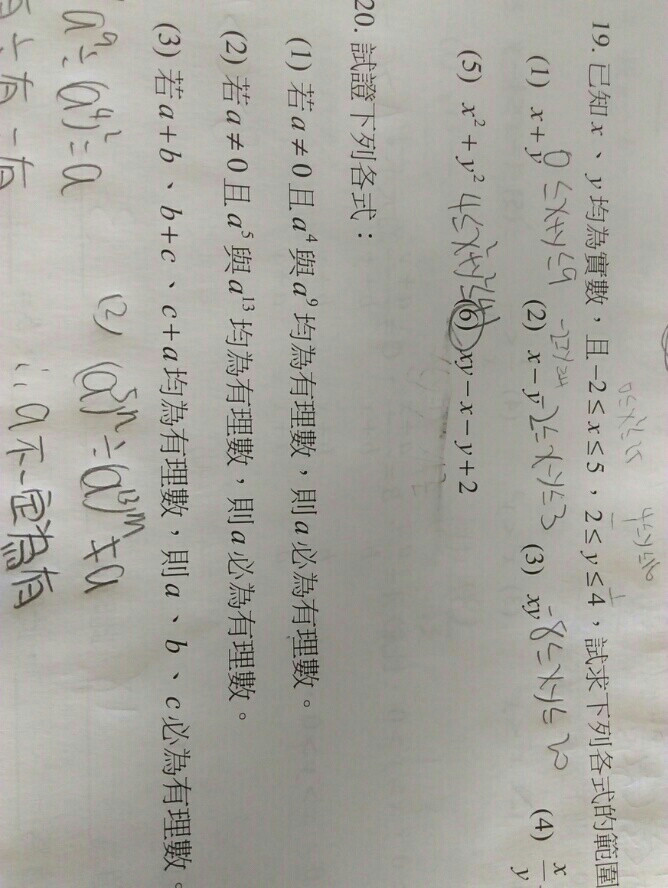 19. 已知 x、y 均為實數,且 -2 ≤ x ≤ 5,2 ≤ y ≤ 4,試求下列各式的範圍
(1) x + y 0 ≤ x+y ≤ 9 (2) x - y (3) xy -8 ≤ xy ≤ 20 (4) x/y
(5) x² + y² (6) xy - x - y + 2
20. 試證下列各式:
(1) 若 a ≠ 0 且 a⁴ 與 a⁹ 均為有理數,則 a 必為有理數。
(2) 若 a ≠ 0 且 a⁵ 與 a¹³ 均為有理數,則 a 必為有理數。
(3) 若 a + b、b + c、c + a 均為有理數,則 a、b、c 必為有理數。
a⁹ ÷ (a⁴)² = a
(2) (a⁵)ⁿ ÷ (a¹³)ᵐ ≠ a
∴ a 不一定為有